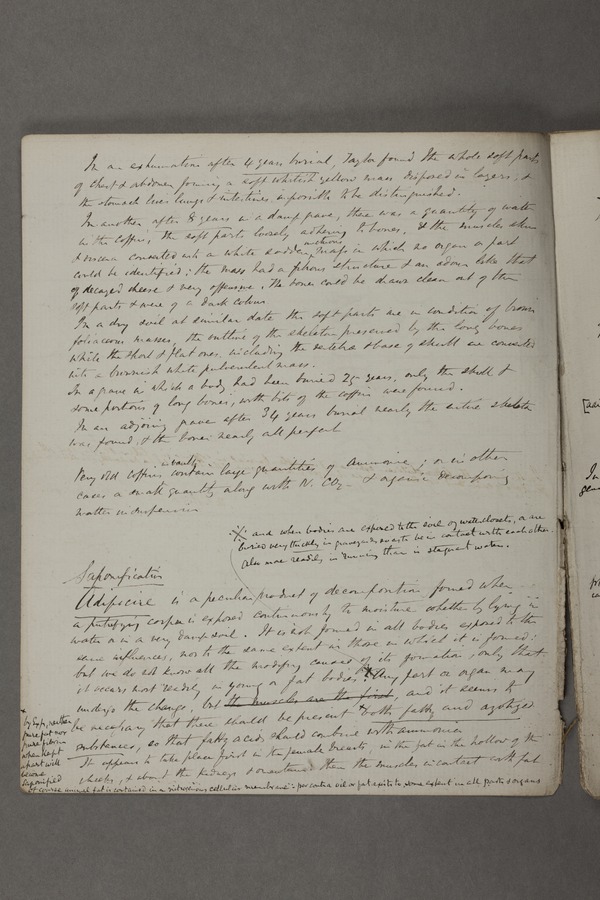 In an exhumation after 4 years burial, Taylor found the whole soft parts
of chest & abdomen forming a soft whitish yellow mass disposed in layers, &
the stomach liver lungs & intestines impossible to be distinguished.
In another after 8 years in a damp grave, there was a quantity of water
in the coffin, the soft parts loosely adhering to bones, & the muscles skin
& viscera converted into a white sodden unctuous mass in which no organ or part
could be identified: the mass had a fibrous structure & an odour like that
of decayed cheese & very offensive. The bones could be drawn clean out of the
soft parts & were of a dark colour
In a dry soil at similar date the soft parts are in condition of brown
foliaceous masses, the outline of the skeleton preserved by the long bones
while the short & flat ones, including the vertebra & base of skull are converted
into a brownish white pulverulent mass.
In a grave in which a body had been buried 25 years, only the skull &
some portions of long bones, with bits of the coffin were found.
In an adjoining grave after 34 years burial nearly the entire skeleton
was found, & the bones nearly all perfect
Very old coffins usually contain large quantities of Ammonia; or in other
cases a small quantity along with N. CO2 & organic decomposing
matter in suspension
and when bodies are exposed to the soil of waterclosets, or are
buried very thickly in graveyards so as to be in contact with each other.
Also more readily in running than in stagnant water.
Saponification
Adipocire is a peculiar product of decomposition formed when
a putrefying corpse is exposed continuously to moisture whether by lying in
water or in a very damp soil. It is not formed in all bodies exposed to the
same influences, nor to the same extent in those in which it is formed:
but we do not know all the modifying causes of its formation; only that
it occurs most readily in young or fat bodies. Any part or organ may
undergo the change, but the muscles are the first, and it seems to
be necessary that there should be present both fatty and azotized
substances, so that fatty acids should combine with ammonia
It appears to take place first in the female breasts, in the fat in the hollow of the
cheeks, & about the kidneys & omentum: then the muscles in contact with fat
by Exp, neither
pure fat nor
pure fibrin
when kept
apart will
become
saponified
Of course animal fat is contained in a nitrogenous cellular membrane: per contra oil or fat exists to some extent in all parts & organs